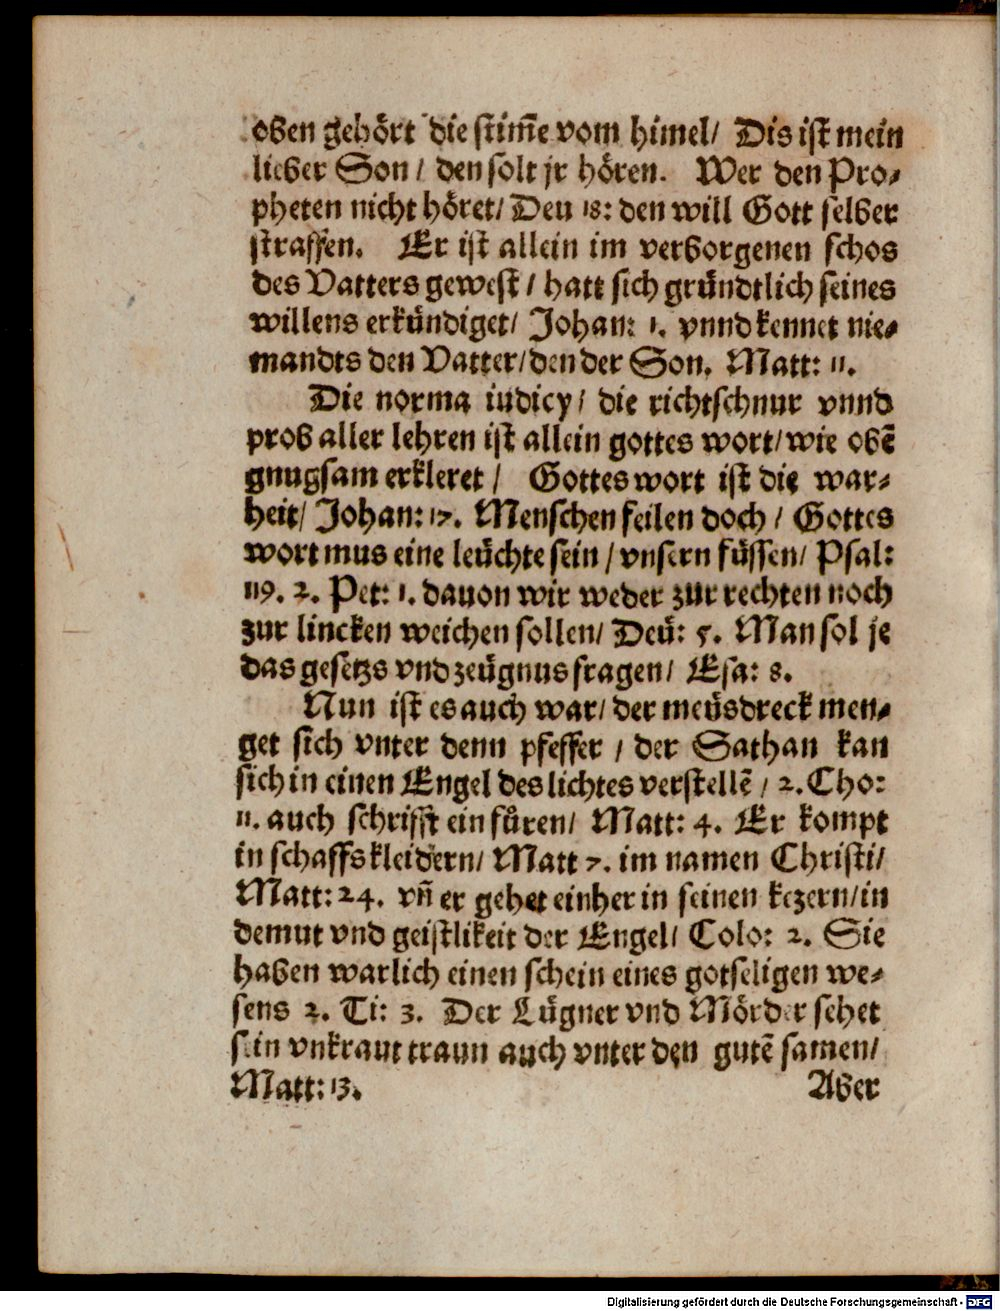 oben gehört die stim̃e vom himel/ Dis ist mein
lieber Son/ den solt jr hören. Wer den Pro-
pheten nicht höret/ Deu 18: den will Gott selber
straffen. Er ist allein im verborgenen schos
des Vatters gewest/ hatt sich gründtlich seines
willens erkündiget/ Johan: 1. vnnd kennet nie-
mandts den Vatter/ den der Son. Matt: 11.
Die norma iudicy/ die richtschnur vnnd
prob aller lehren ist allein gottes wort/ wie obē
gnugsam erkleret/ Gottes wort ist die war-
heit/ Johan: 17. Menschen feilen doch/ Gottes
wort mus eine leüchte sein/ vnsern füssen/ Psal:
119. 2. Pet: 1. dauon wir weder zur rechten noch
zur lincken weichen sollen/ Deü: 5. Man sol je
das gesetzs vnd zeügnus fragen/ Esa: 8.
Nun ist es auch war/ der meüsdreck men-
get sich vnter denn pfeffer/ der Sathan kan
sich in einen Engel des lichtes verstellē/ 2. Cho:
11. auch schrifft einfůren/ Matt: 4. Er kompt
in schaffs kleidern/ Matt 7. im namen Christi/
Matt: 24. vñ er gehet einher in seinen kezern/ in
demut vnd geistlikeit der Engel/ Colo: 2. Sie
haben warlich einen schein eines gotseligen we-
sens 2. Ti: 3. Der Lügner vnd Mörder sehet
sein vnkraut traun auch vnter den gutē samen/
Matt: 13. Aber
Digitalisierung gefördert durch die Deutsche Forschungsgemeinschaft - DFG